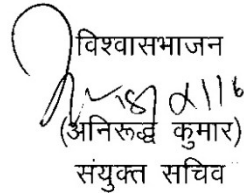 विश्वासभाजन
(अनिरूद्ध कुमार)
संयुक्त सचिव